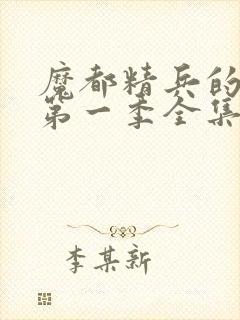 魔都精兵的
第一季全集
李某新